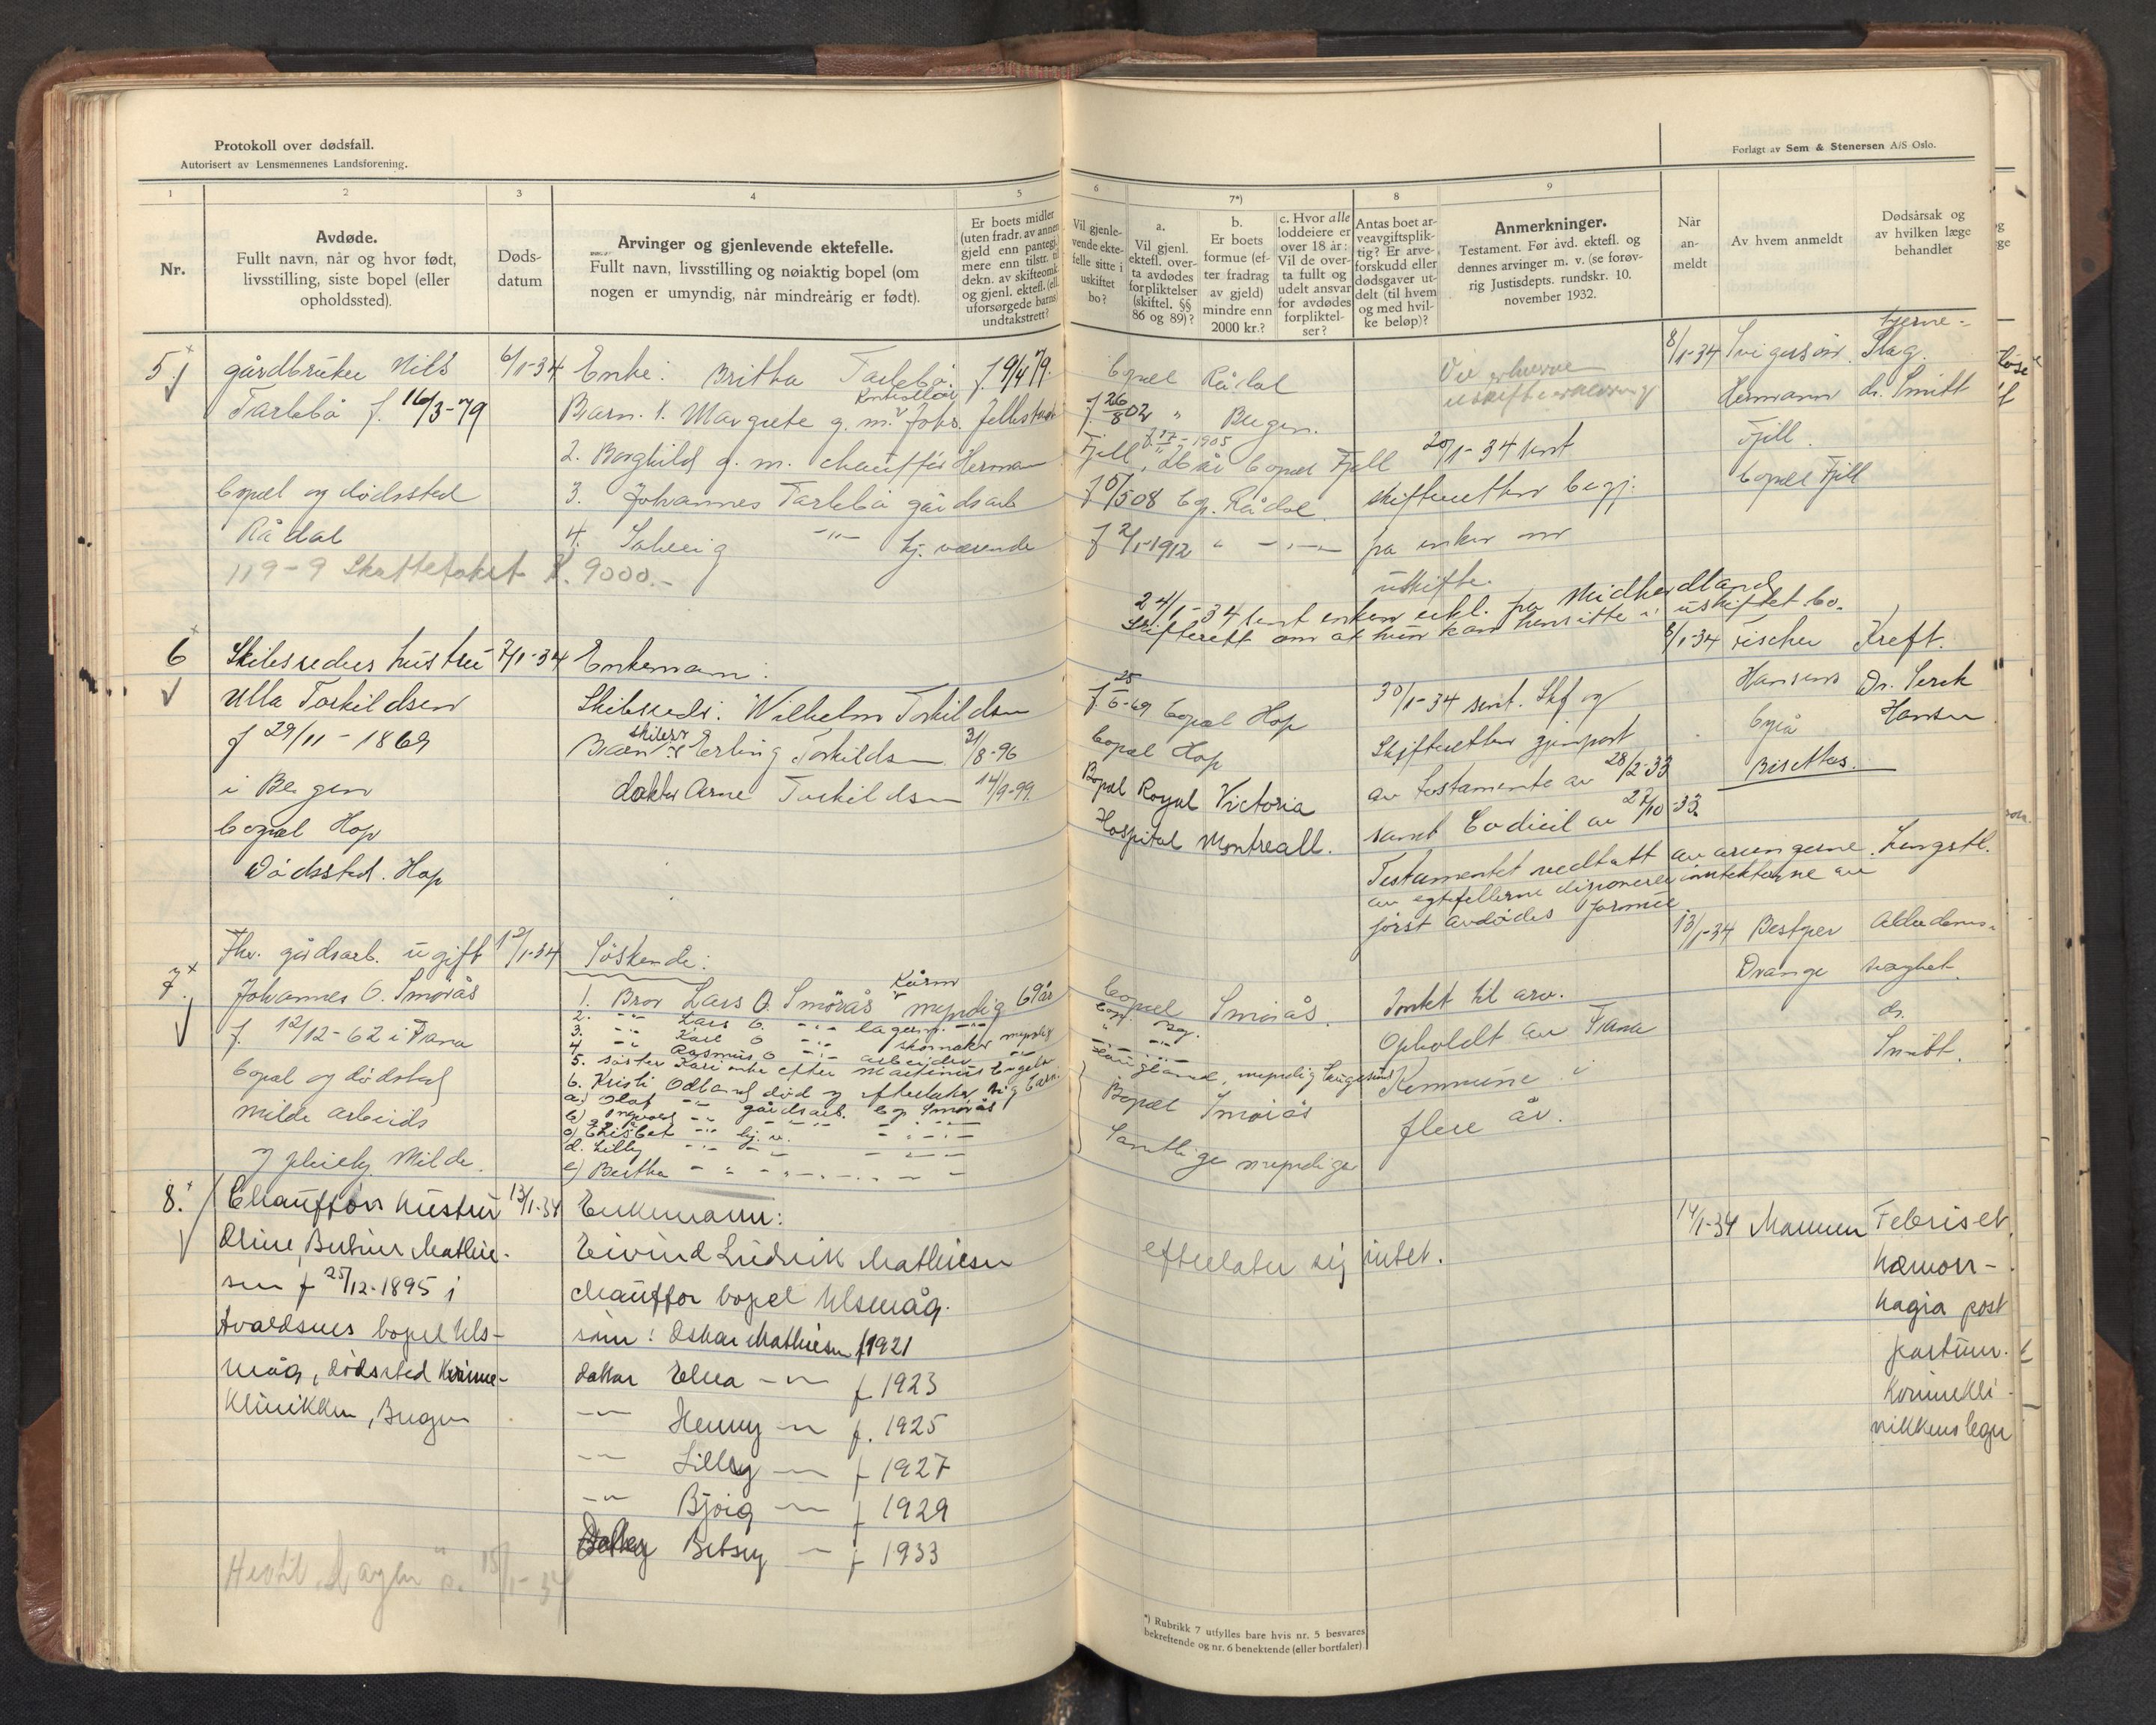 Protokoll over dødsfall.
Autorisert av Lensmennenes Landsforening.
Forlagt av Sem & Stenersen A/S Oslo.
1
2
3
4
5
6
7*)
8
9
Nr.
Avdøde.
Fullt navn, når og hvor født,
livsstilling, siste bopel (eller
opholdssted).
Døds-
datum
Arvinger og gjenlevende ektefelle.
Fullt navn, livsstilling og nøiaktig bopel (om
nogen er umyndig, når mindreårig er født).
Er boets midler
(uten fradr. av annen
gjeld enn pantegj.)
mere enn tilstr. til
dekn. av skifteomk.
og gjenl. ektefl. (ell.
uforsørgede barns)
undtakstrett?
Vil gjenle-
vende ekte-
felle sitte i
uskiftet
bo?
a.
Vil gjenl.
ektefl. over-
ta avdødes
forpliktelser
(skiftel. §§
86 og 89)?
b.
Er boets
formue (ef-
ter fradrag
av gjeld)
mindre enn
2000 kr.?
c. Hvor alle
loddeiere er
over 18 år:
Vil de over-
ta fullt og
udelt ansvar
for avdødes
forpliktel-
ser?
Antas boet ar-
veavgiftsplik-
tig? Er arve-
forskudd eller
dødsgaver ut-
delt (til hvem
og med hvil-
ke beløp)?
Anmerkninger.
Testament. Før avd. ektefl. og
dennes arvinger m. v. (se forøv-
rig Justisdepts. rundskr. 10.
november 1932.
Når
an-
meldt
Av hvem anmeldt
Dødsårsak og
av hvilken læge
behandlet
5.
gårdbruker Nils
Tarlebø f. 16/3-79
bopæl og dødssted
Rådal
119-9 Skattetakst K. 9000.-
6/1-34
Enke: Britha Tarlebø. f 9/4 79.
Barn. 1. Margrete g. m. Johs.
2. Borghild g. m. chauffør Herman
3. Johannes Tarlebø gårdsarb
4. Solveig -"- hj. værende
bopæl Rådal
f 26/8 02 " Bergen.
Fjell, bopæl Fjell
f 5/5 08 bop. Rådal.
f 2/1-1912 " -"-
20/1-34 sent
skifteretten begj.
fra enken om
uskifte.
24/1-34 sent enken erkl. fra Midhordland
Skifterett om at hun kan hensitte i uskiftet bo.
8/1-34 Svigersøn
Hermann
Fjell.
bopæl Fjell
hjerne-
slag.
dr. Smitt
6
Skibsreders hustru
Ulla Torkildsen
f 29/11-1869
i Bergen
bopæl Hop
Dødssted. Hop
7/1-34
Enkemann:
Skibsreder: Wilhelm Torkildsen
Barn: skibsr Erling Torkildsen 31/8-96
doktor Arne Torkildsen 14/9-99.
f. 25/6-69 bopæl Hop
bopæl Hop
Bopæl Royal Victoria
Hospital Montreall.
30/1-34 sent. Skf og
Skifteretten gjenpart
av testamente av 28/2-33
samt Codicil av 27/10-33.
Testamentet vedtatt av arvingerne. Lengstl.
av egtefellerne disponerer inntekterne av
først avdødes formue
8/1-34 Fischer
Hansens
byrå
Bisettes.
Kreft.
Dr. Gerck
Hansen
7.
Fhv. gårdsarb. ugift
Johannes O. Smørås
f. 12/12-62 i Fana
bopæl og dødssted
Milde arbeids
og pleiehj Milde.
12/1-34
Søskende:
1. Bror Lars O. Smørås myndig 69 år
2. -"- Lars O. -"- lagerm. -"-
3. -"- Karl O -"- skomaker myndig
4 -"- Rasmus O -"- arbeider -"-
5. søster Kari enke efter Martinus
6. Kristi Odland død og efterlater sig barn.
a.) Olaf -"- gårdsarb. bop Smørås
b) Ingvald -"-
c) Elisbet -"- hj. v.
d. Lilly -"-
e) Bertha -"-
bopæl Smørås.
Haugland, myndig Haugesund
Bopæl Smørås
Samtlige myndige
Intet til arv.
Opholdt av Fana
Kommune i
flere år.
13/1-34 Bestyrer
Drange
Alderdoms-
svaghet.
dr.
Smitt.
8.
Chaufførs hustru
Oline Bertine Mathie-
sen f 25/12-1895 i
Avaldsnes bopel Uls-
måg, dødssted Kvinne-
klinikken, Bergen
13/1-34
Enkemann:
Eivind Ludvik Mathiesen
chauffør bopel Ulsmåg.
sønn: Oskar Mathiesen f 1921
datter Elna -"- f 1923
-"- Henny -"- f. 1925
-"- Lilly -"- f 1927
-"- Bjørg -"- f 1929
Datter Betsey -"- f 1933
efterlater sig intet.
14/1-34 Mannen
Febris et
hæmorr-
hagia post
partum.
Kvinnekli
nikkens læge
Hertil 15/1-34
*) Rubrikk 7 utfylles bare hvis nr. 5 besvares
bekreftende og nr. 6 benektende (eller bortfaler)